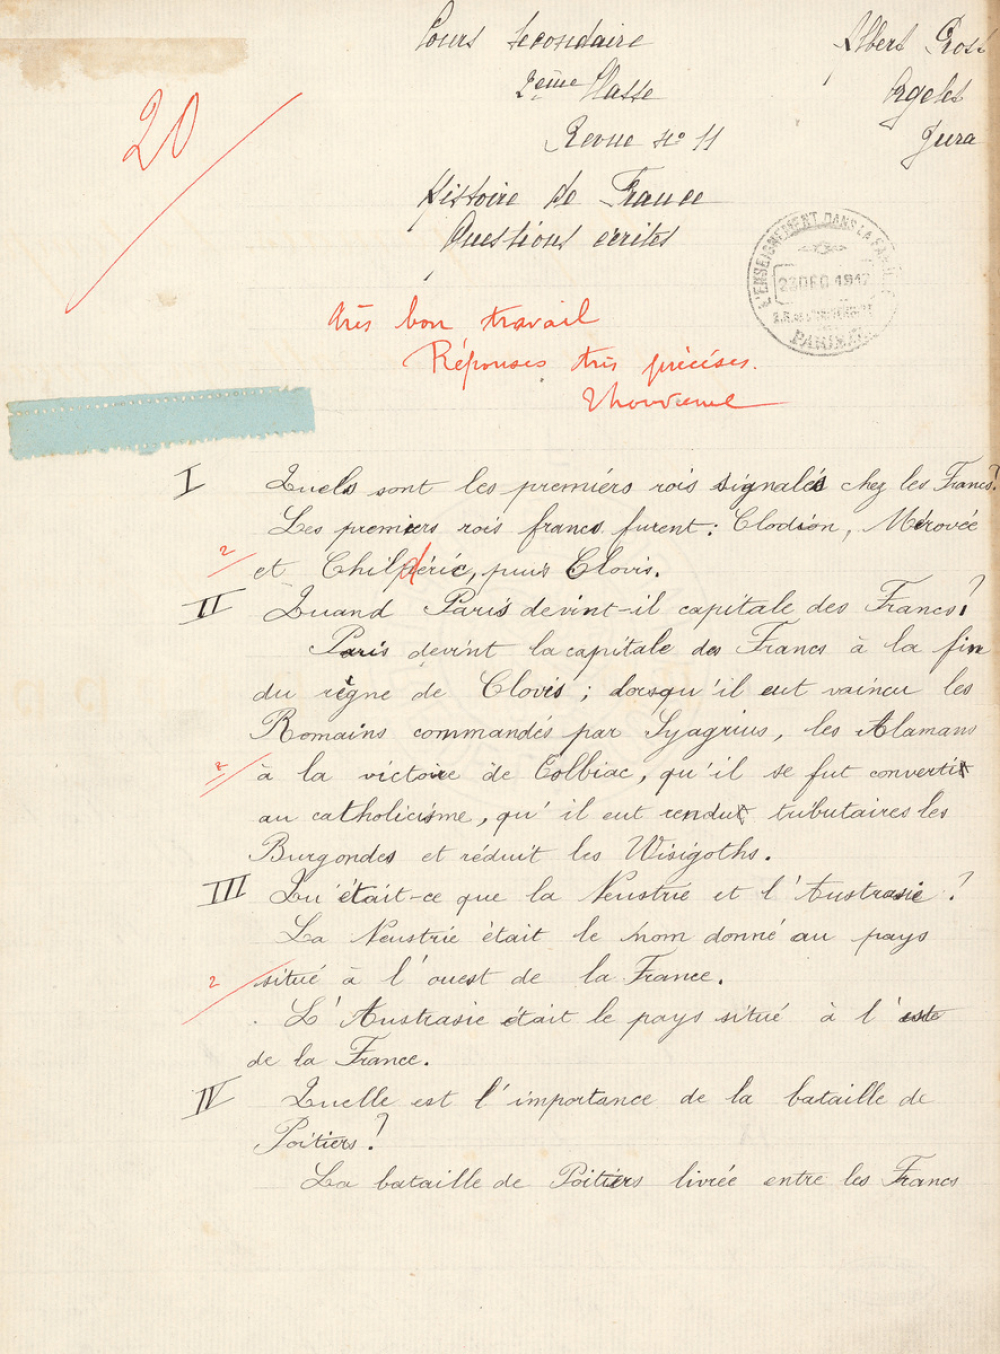 Cours secondaire
2ème Classe
Revue no 11
Albert Gros
Jura
20
Histoire de France
Questions écrites
L'ENSEIGNEMENT DANS LA FAMILLE
23 DEC 1917
PARIS
très bon travail
Réponses très précises.
I Quels sont les premiérs rois signalés chez les Francs?
Les premiers rois francs furent: Clodion, Mérovée
2 et Childéric, puis Clovis.
II Quand Paris devint-il capitale des Francs?
Paris devint la capitale des Francs à la fin
du règne de Clovis; lorsqu'il eut vaincu les
Romains commandés par Syagrius, les Alamans
à la victoire de Tolbiac, qu'il se fut converti
au catholicisme, qu'il eut rendu tributaires les
Burgondes et réduit les Wisigoths.
III Qu'était-ce que la Neustrie et l'Austrasie?
La Neustrie était le nom donné au pays
2 situé à l'ouest de la France.
L'Austrasie était le pays situé à l'est
de la France.
IV Quelle est l'importance de la bataille de
Poitiers?
La bataille de Poitiers livrée entre les Francs